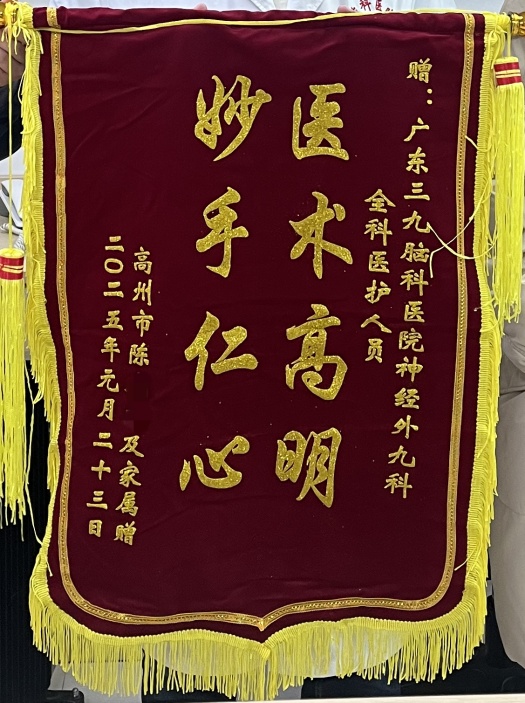 赠：广东三九脑科医院神经外九科
全科医护人员
医术高明
妙手仁心
高州市陈 及家属赠
二〇二五年元月二十三日